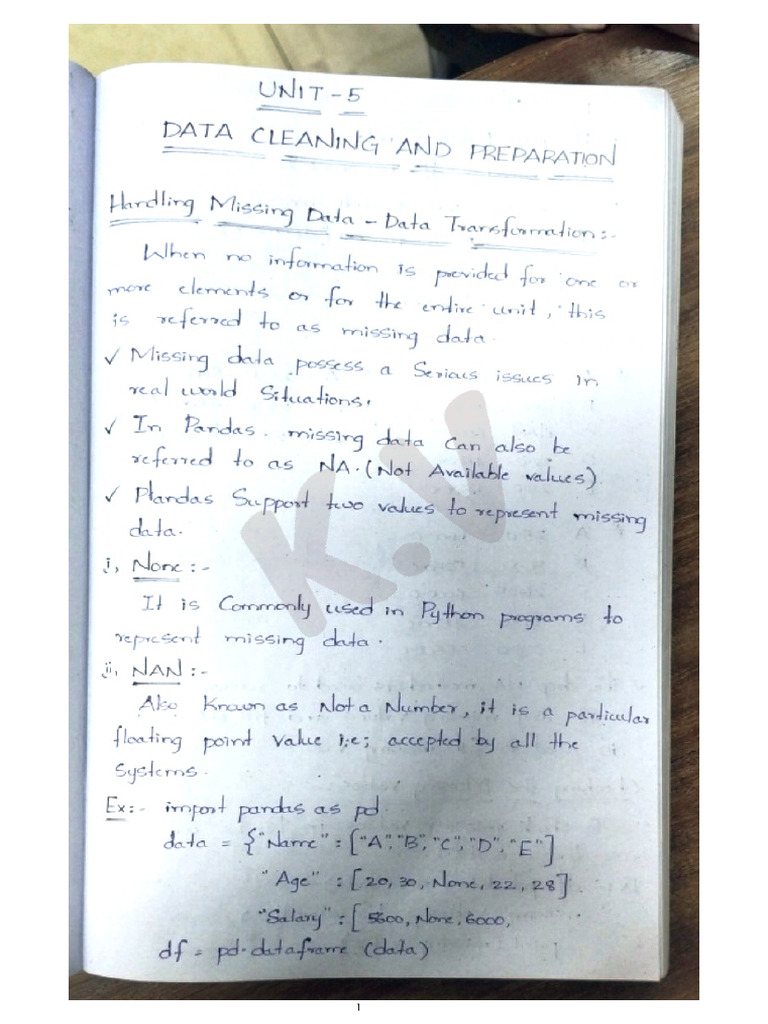 UNIT - 5
DATA CLEANING AND PREPARATION
Handling Missing Data - Data Transformation :-
When no information is provided for one or
more elements or for the entire unit, this
is referred to as missing data.
✓ Missing data possess a Serious issues in
real world Situations.
✓ In Pandas. missing data Can also be
referred to as NA. (Not Available values).
✓ Plandas Support two values to represent missing
data.
i, None :-
It is Commonly used in Python programs to
represent missing data.
ii, NAN :-
Also Known as Not a Number, it is a particular
floating point value i.e; accepted by all the
Systems.
Ex:- import pandas as pd
data = {"Name" : ["A", "B", "C", "D", "E"]
"Age" : [20, 30, None, 22, 28]
"Salary" : [5600, None, 6000,
df = pd.dataframe (data)
K.V
1